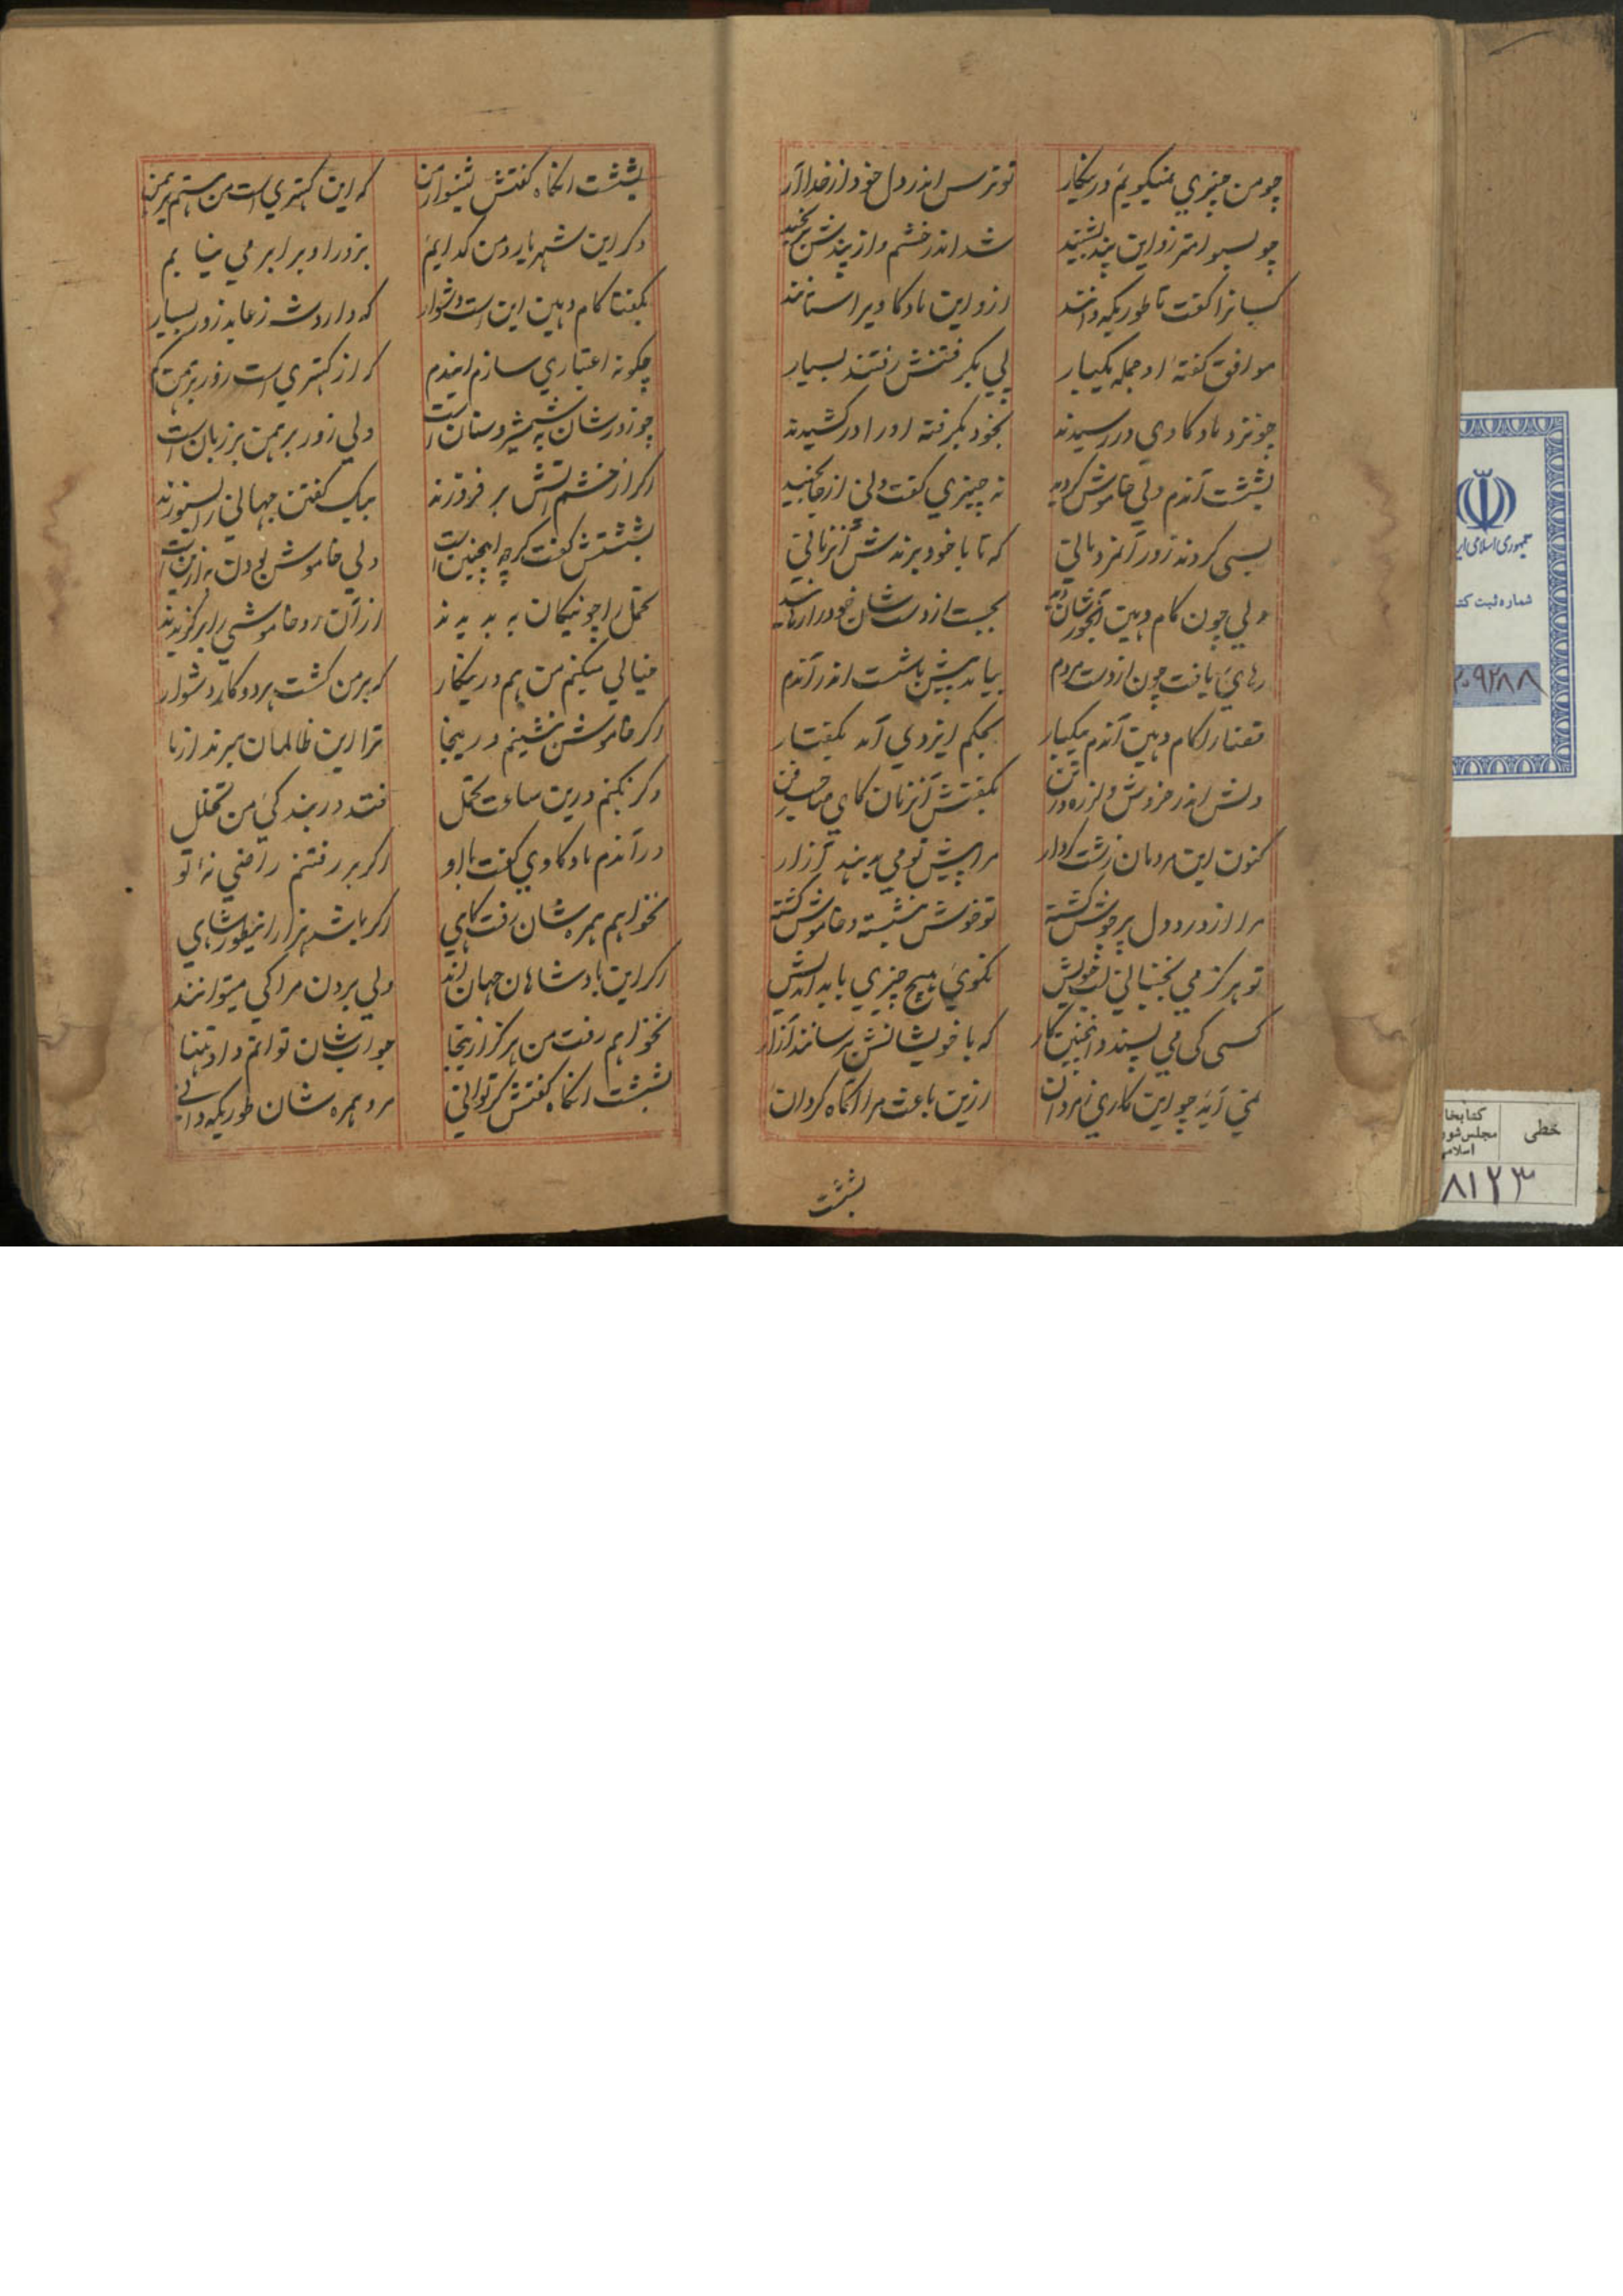 چو من چیزی نمیگویم درینکار تو ترس اندر دل خود از خدا آر
چو بسوامتر زو این پند بشنید شد اندر خشم و از پندش برنجید
کسانرا گفت تا طوریکه دانند ازو این مادکاو یرا ستانند
موافق گفتهٔ او جمله یکبار پی بگرفتنش رفتند بسیار
چو نزد مادکاوی در رسیدند بخود بگرفته او را در کشیدند
بششت آندم ولی خاموش گردید نه چیزی گفت ولی از جا بجنبید
بسی کردند زور آنمردمانی که تا با خود برندش آنزمانی
ولی چون کام دهین آنجورشان دید بجست از دستشان خود را رهانید
رهائی یافت چون از دست مردم بیامد پیش بششت اندر آندم
قضا را کام دهین آندم بیکبار بحکم ایزدی آمد بگفتار
دلش اندر خروش و لرزه در تن بگفتش آنزمان کای صاحب من
کنون این مردمان زشت کردار مرا پیش تو می بدهند آزار
مرا از درد دل پر جوش گشته تو خوش بنشسته و خاموش گشته
تو هرگز می نجنبانی لب خویش نگوئی هیچ چیزی باید اندیش
کسی کی می پسندد اینچنین کار که با خویشانش برسانند آزار
نمی آید چو این کاری ز مردان ازین باعث مرا آگاه گردان
بششت
بششت آنگاه گفتش بشنو از من که این کهتری است من هستم برهمن
دگر این شهریار و من گدایم بزور او برابر می نیایم
بگفتا کام دهین این است دشوار که دارد شه ز عابد زور بسیار
چگونه اعتباری سازم ایندم که از کهتری است زور برهمن کم
چو زورشان به شمشیر و سنان است ولی زور برهمن بر زبان است
اگر از خشم آتش بر فروزند بیک گفتن جهانی را بسوزند
بششتش گفت گرچه اینچنین است ولی خاموش بودن به ازین است
تحمل را چو نیکان به بدیدند از آن رو خاموشی را برگزیدند
خیالی میکنم من هم درینکار که بر من گشت هر دو کار دشوار
اگر خاموش بنشینم در اینجا ترا این ظالمان ببرند از ما
وگر نکنم درین ساعت تحمل فتد در بندگی من تخلل
در آندم مادکاوی گفت با او اگر بر رفتنم راضی نهٔ تو
نخواهم همره شان رفت گاهی اگر باشد هزار اینطور شاهی
اگر این بادشاهان جهان اند ولی بردن مرا کی میتوانند
نخواهم رفت من هرگز ازینجا جوابشان توانم داد تنها
بششت آنگاه گفتش گر توانی مرو همره شان طوریکه دانی
جمهوری اسلامی ایر
شماره ثبت کتا
۲۰۹۲۸۸
خطی
کتابخا
مجلس شور
اسلامی
۸۱۲۳